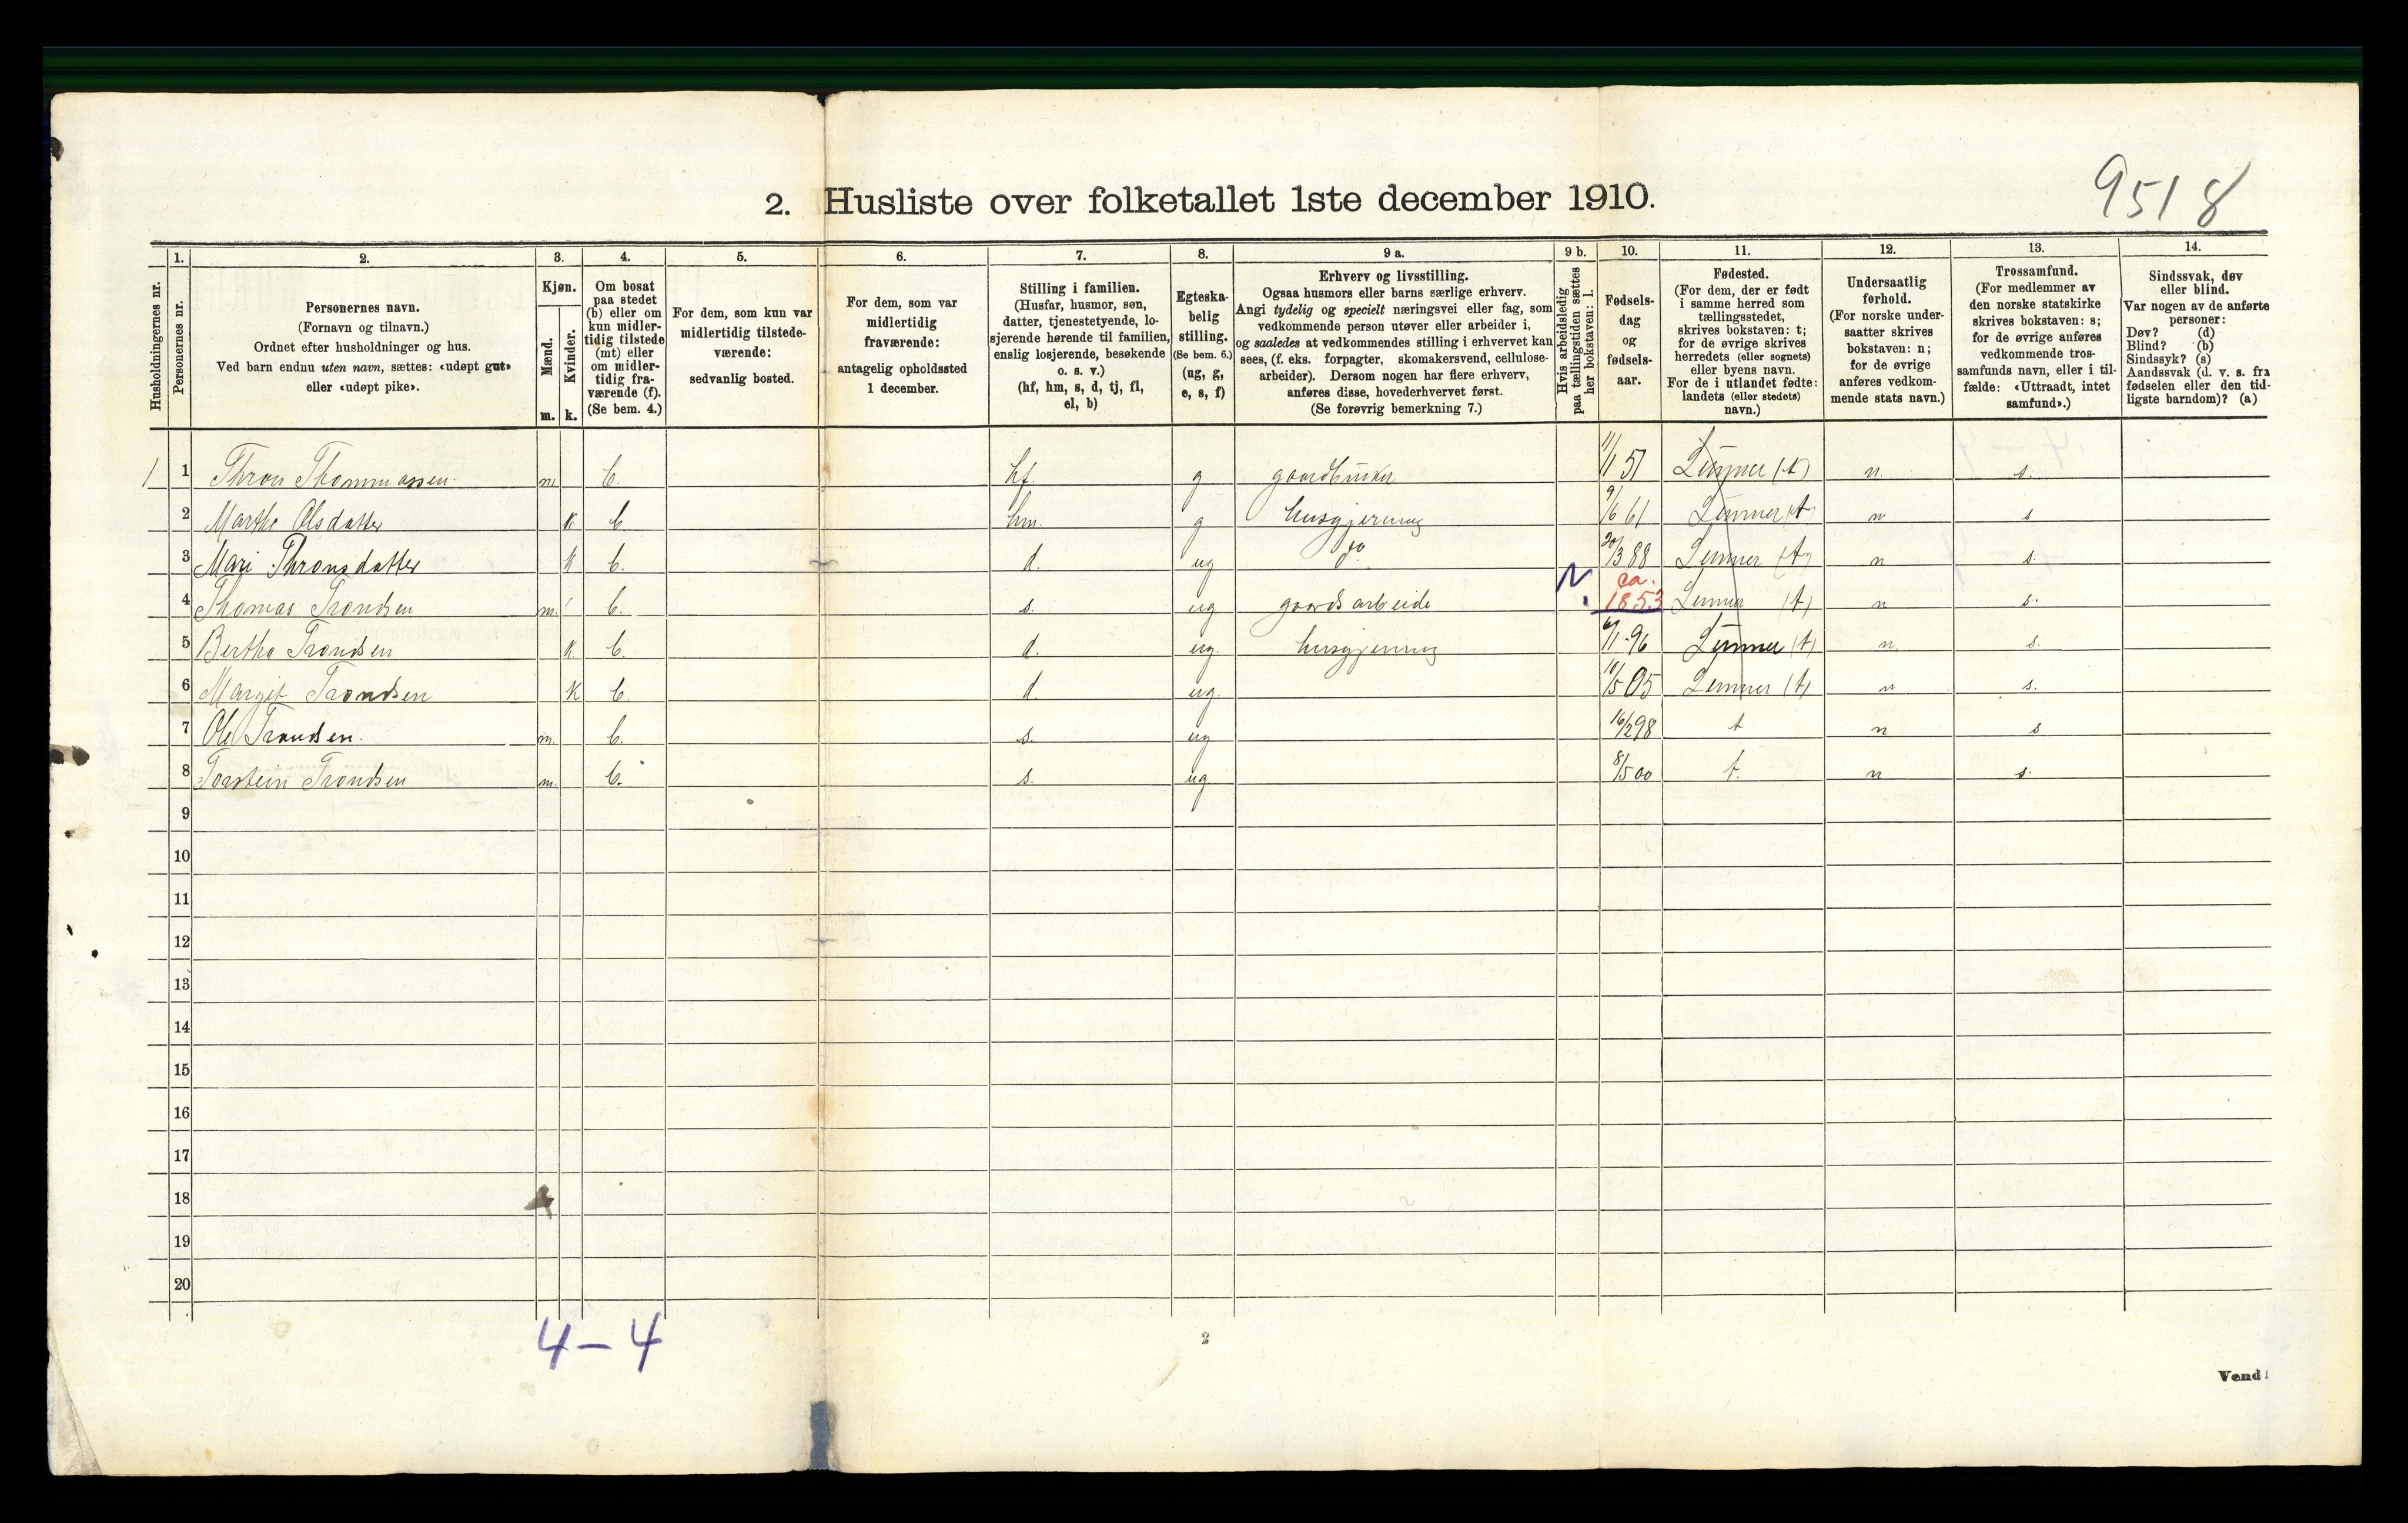 9518
2. Husliste over folketallet 1ste december 1910.
1. 2. 3. 4. 5. 6. 7. 8. 9 a. 9 b. 10. 11. 12. 13. 14.
Husholdningernes nr.
Personernes nr.
Personernes navn.
(Fornavn og tilnavn.)
Ordnet efter husholdninger og hus.
Ved barn endnu uten navn, sættes: «udøpt gut»
eller «udøpt pike».
Kjøn.
Mænd.
Kvinder.
m. k.
Om bosat
paa stedet
(b) eller om
kun midler-
tidig tilstede
(mt) eller
om midler-
tidig fra-
værende (f).
(Se bem. 4.)
For dem, som kun var
midlertidig tilstede-
værende:
sedvanlig bosted.
For dem, som var
midlertidig
fraværende:
antagelig opholdssted
1 december.
Stilling i familien.
(Husfar, husmor, søn,
datter, tjenestetyende, lo-
sjerende hørende til familien,
enslig losjerende, besøkende
o. s. v.)
(hf, hm, s, d, tj, fl,
el, b)
Egteska-
belig
stilling.
(Se bem. 6.)
(ug, g,
e, s, f)
Erhverv og livsstilling.
Ogsaa husmors eller barns særlige erhverv.
Angi tydelig og specielt næringsvei eller fag, som
vedkommende person utøver eller arbeider i,
og saaledes at vedkommendes stilling i erhvervet kan
sees, (f. eks. forpagter, skomakersvend, cellulose-
arbeider). Dersom nogen har flere erhverv,
anføres disse, hovederhvervet først.
(Se forøvrig bemerkning 7.)
Hvis arbeidsledig
paa tællingstiden sættes
her bokstaven: l.
Fødsels-
dag
og
fødsels-
aar.
Fødested.
(For dem, der er født
i samme herred som
tællingsstedet,
skrives bokstaven: t;
for de øvrige skrives
herredets (eller sognets)
eller byens navn.
For de i utlandet fødte:
landets (eller stedets)
navn.)
Undersaatlig
forhold.
(For norske under-
saatter skrives
bokstaven: n;
for de øvrige
anføres vedkom-
mende stats navn.)
Trossamfund.
(For medlemmer av
den norske statskirke
skrives bokstaven: s;
for de øvrige anføres
vedkommende tros-
samfunds navn, eller i til-
fælde: «Uttraadt, intet
samfund».)
Sindssvak, døv
eller blind.
Var nogen av de anførte
personer:
Døv? (d)
Blind? (b)
Sindssyk? (s)
Aandssvak (d. v. s. fra
fødselen eller den tid-
ligste barndom)? (a)
1 1 Thron Thommassen m b. hf. g gaardbruker 11/1 57 Lunner (t) n. s.
2 Marthe Olsdatter k b hm. g husgjerning 9/6 61 Lunner (t) n s
3 Mari Thronsdatter k b. d. ug do 20/3 88 Lunner (t) n s.
4 Thomas Trondsen m. b. s. ug gaardsarbeide ca. 1853 Lunner (t) n s.
5 Bertha Trondsen k b. d. ug. husgjerning 6/1 96 Lunner (t) n. s.
6 Margit Trondsen k b. d. ug. 10/5 05 Lunner (t) n s.
7 Ole Trondsen. m. b. s. ug 16/2 98 t n s
8 Torstein Trondsen m. b. s. ug. 8/5 00 t. n s.
9
10
11
12
13
14
15
16
17
18
19
20
4 – 4
2
Vend!